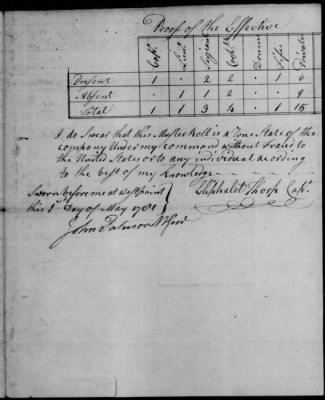 Proof of the Effective
Capt. Lieut. Serjean Corpls Drumm Fifes Privates
Present 1 1 2 2 · 1 6
Absent · 1 1 2 · · 9
Total 1 1 3 4 · 1 15
I do Swear that this Muster Roll is a True State of the
Company Under my Command without Fraud to
the United States or to any individual acording
to the best of my Knowledge
Sworn before me at Westpoint
this 1st Day of May 1781
Eliphalet Thorp Capt.
John Paterson